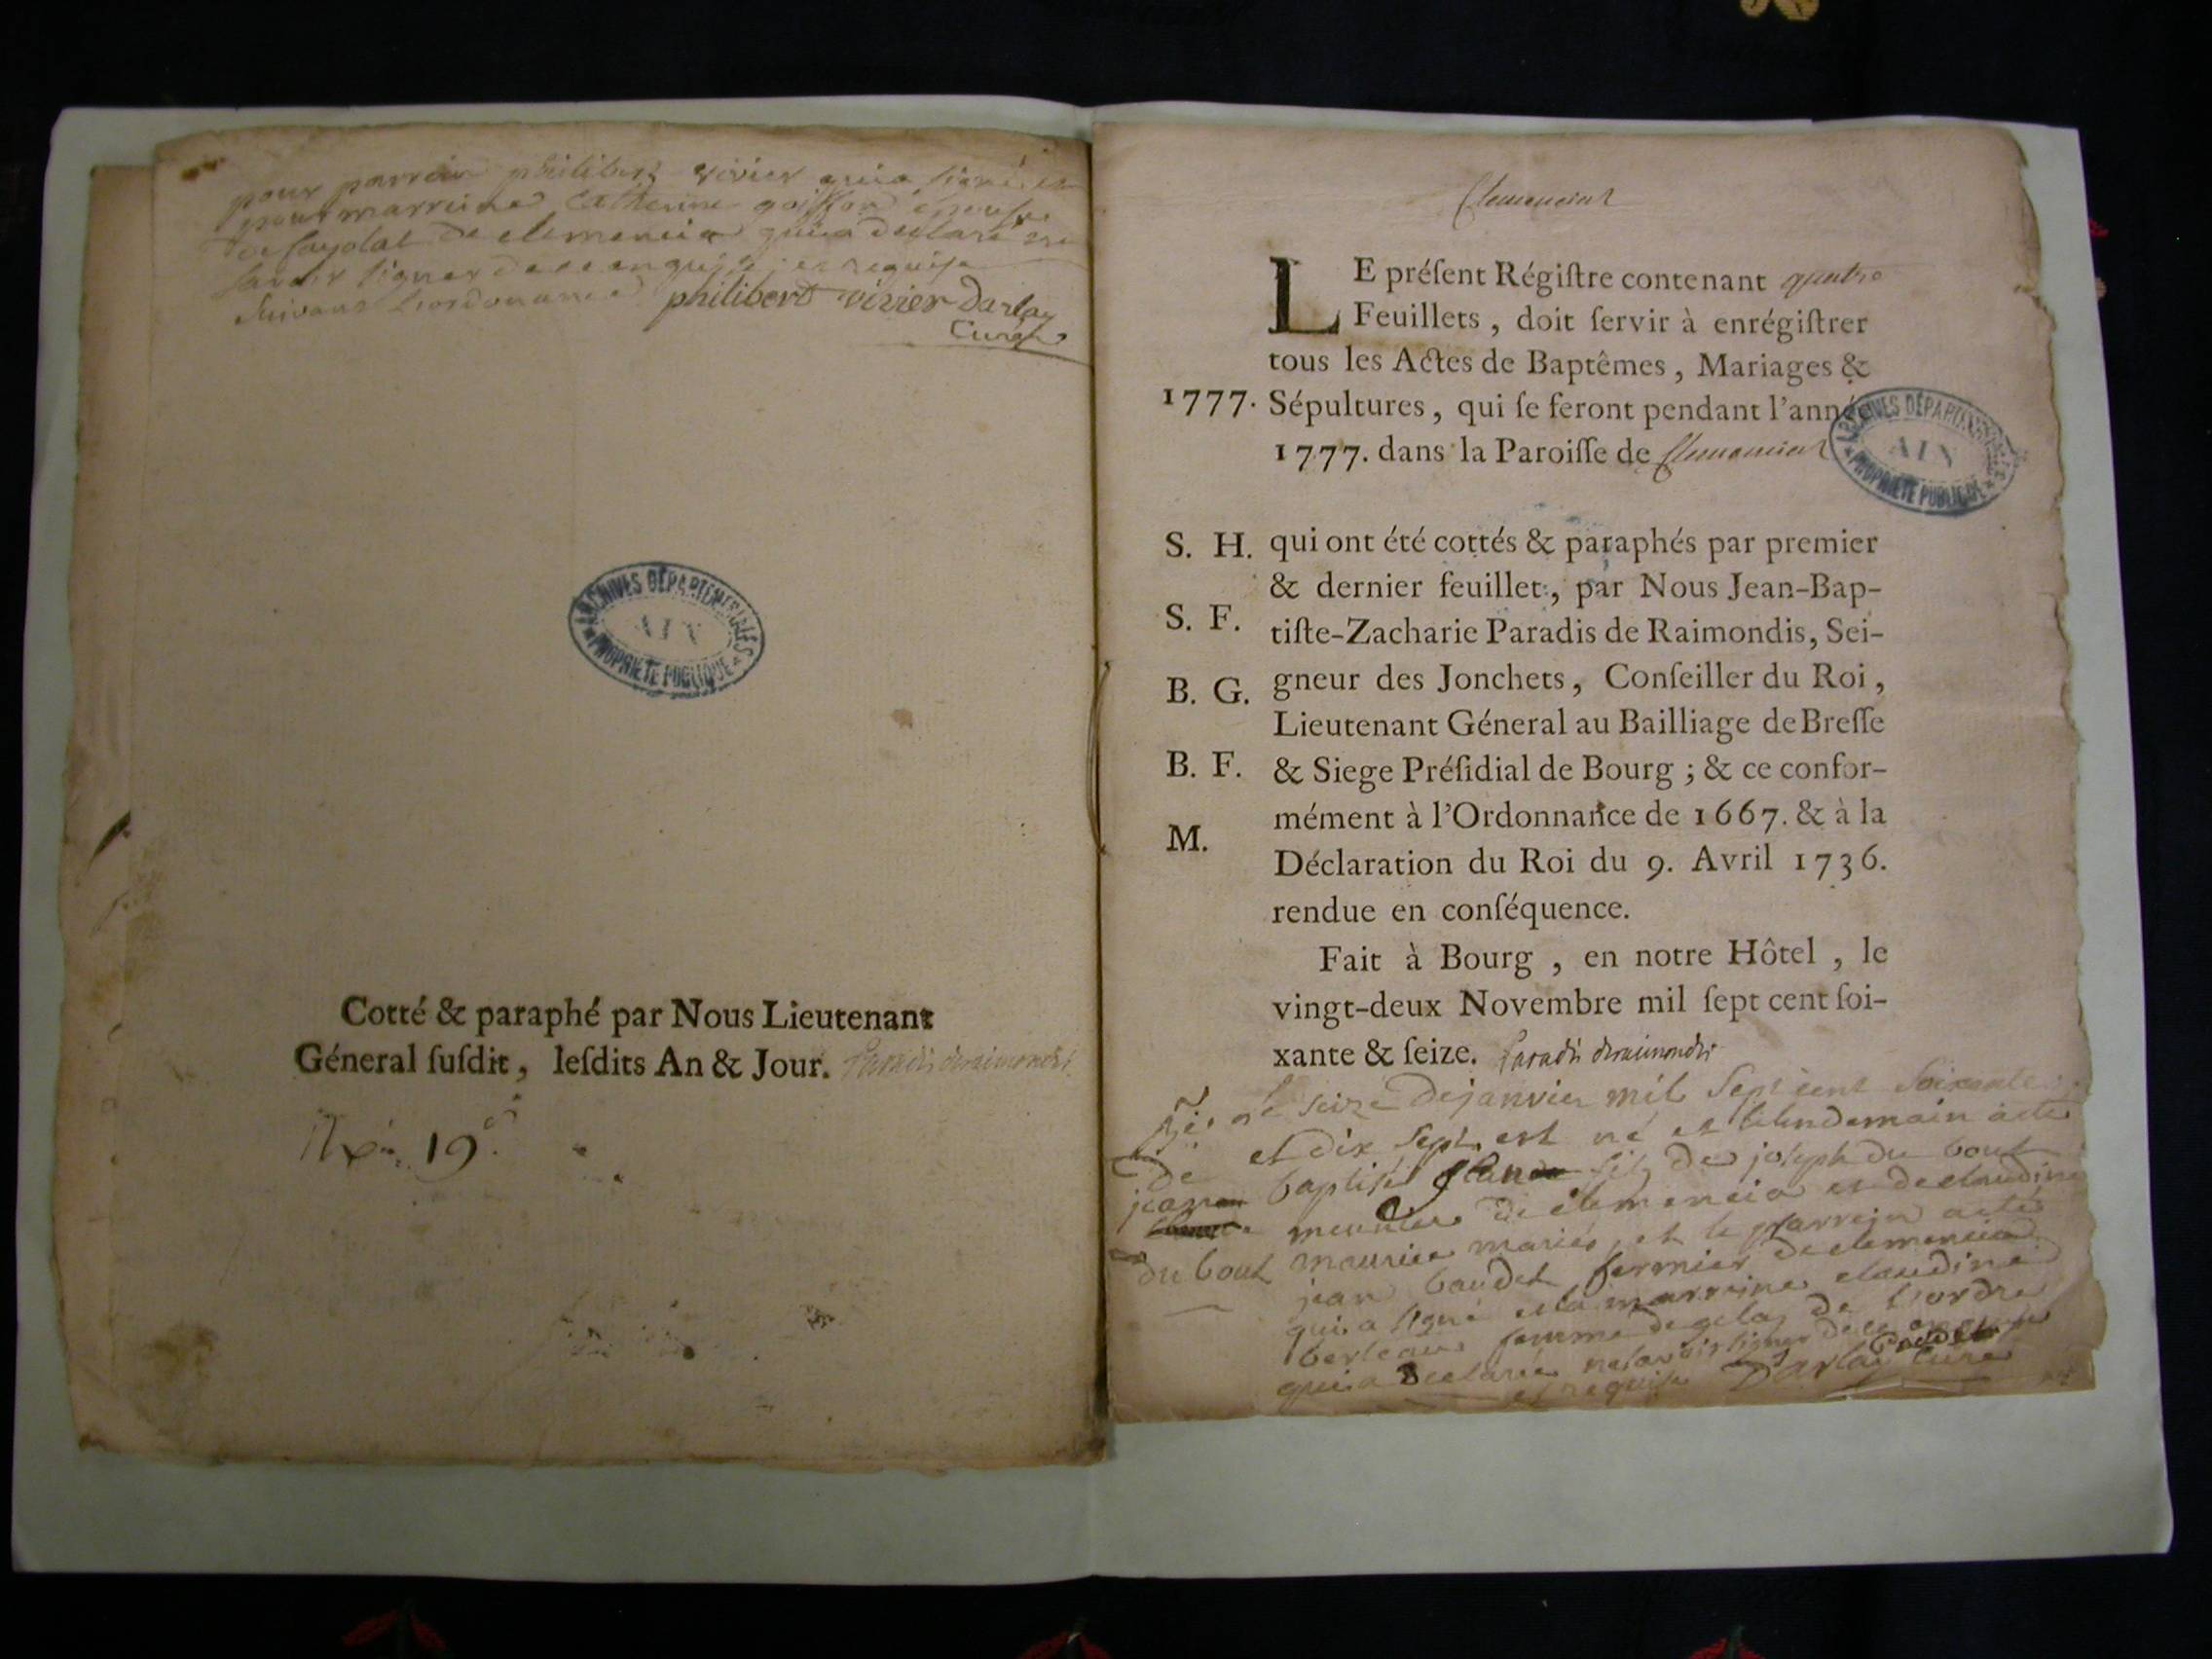 pour parrein philibert vivier qui a signé et
pour marreine Catherine goiffon épouse
de fayolat de clemencia qui a declaré ne
savoir signer de ce enquise et requise
suivant l'ordonnance philibert vivier Darlay
Curé
ARCHIVES DÉPARTEMENTALES
AIN
PROPRIÉTÉ PUBLIQUE
Cotté & paraphé par Nous Lieutenant
Géneral ſuſdit, leſdits An & Jour. Paradis deraimondis
19
Clemenciat
LE préſent Régiſtre contenant quatre
Feuillets, doit ſervir à enrégiſtrer
tous les Actes de Baptêmes, Mariages &
1777. Sépultures, qui ſe feront pendant l'année
1777. dans la Paroiſſe de Clemenciat
ARCHIVES DÉPARTEMENTALES
AIN
PROPRIÉTÉ PUBLIQUE
S. H. qui ont été cottés & paraphés par premier
& dernier feuillet, par Nous Jean-Bap-
S. F. tiſte-Zacharie Paradis de Raimondis, Sei-
B. G. gneur des Jonchets, Conſeiller du Roi,
Lieutenant Géneral au Bailliage de Breſſe
B. F. & Siege Préſidial de Bourg; & ce confor-
mément à l'Ordonnance de 1667. & à la
M. Déclaration du Roi du 9. Avril 1736.
rendue en conſéquence.
Fait à Bourg, en notre Hôtel, le
vingt-deux Novembre mil ſept cent ſoi-
xante & ſeize. Paradis deraimondis
le seize de janvier mil sept cent soixante
et dix sept est né et le lendemain a été
de baptisé fils de joseph du bout
jean meunier de clemencia et de claudine
du bout maurice mariés, et le parrein a été
jean baudet fermier de clemencia
qui a signé et la marreine claudine
femme de de l'ordre
qui a declaré ne savoir signer de ce enquise
et requise Darlay Curé baudet